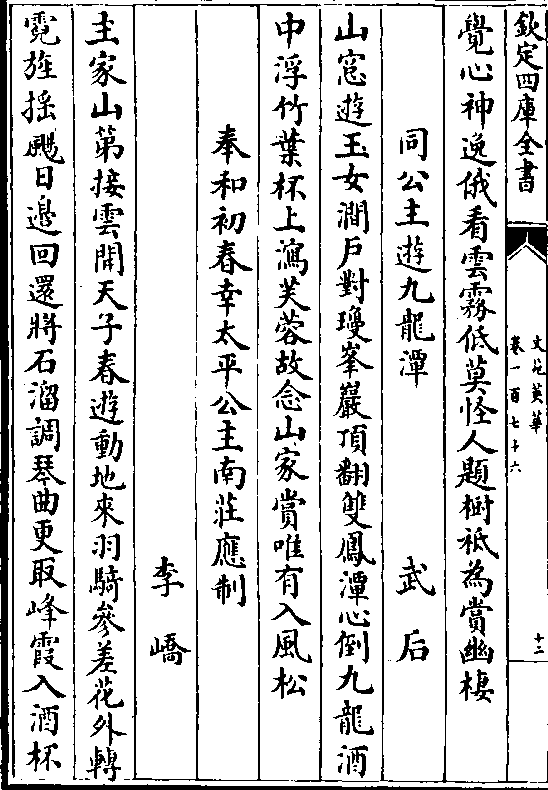 欽定四庫全書
文苑英華
卷一百七十六
十二
覺心神逸俄看雲霧低莫怪人題樹祗為賞幽棲
同公主遊九龍潭
武后
山窓遊玉女澗戶對瓊峯巖頂翻雙鳳潭心倒九龍酒
中浮竹葉杯上瀉芙蓉故念山家賞唯有入風松
奉和初春幸太平公主南莊應制
李嶠
主家山第接雲開天子春遊動地來羽騎參差花外轉
霓旌揺颺日邊回還將石溜調琴曲更取峰霞入酒杯